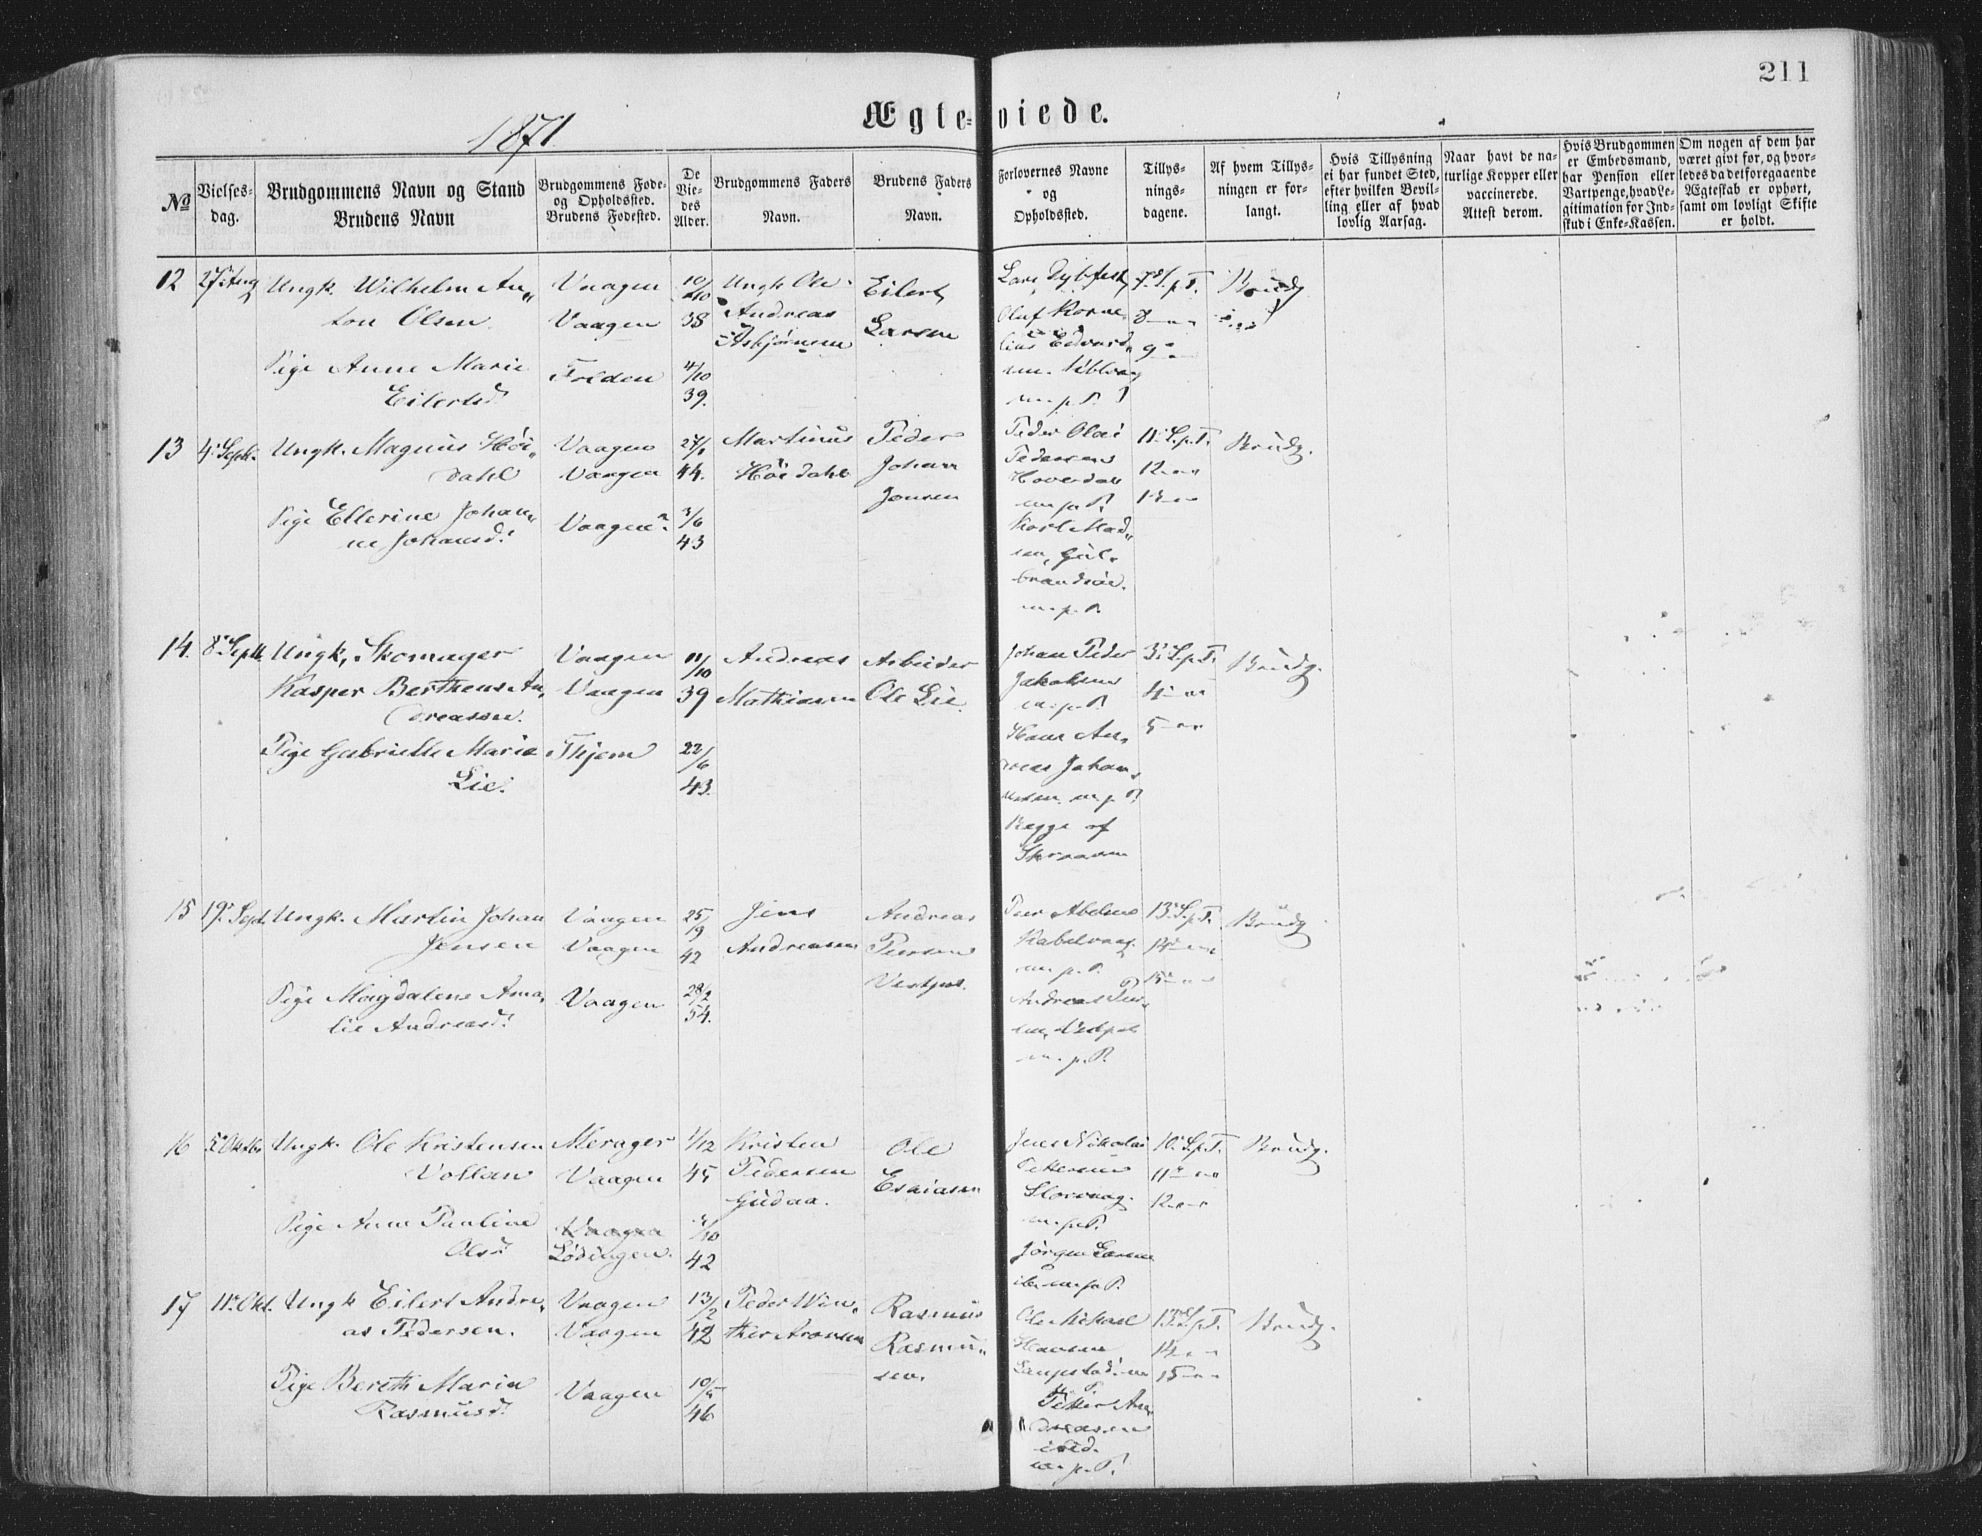 211
1871.
Ægte-viede.
№
Vielses-
dag.
Brudgommens Navn og Stand
Brudens Navn
Brudgommens Føde-
og Opholdssted.
Brudens Fødested.
De
Vie-
des
Alder.
Brudgommens Faders
Navn.
Brudens Faders
Navn.
Forlovernes Navne
og
Opholdssted.
Tillys-
nings-
dagene.
Af hvem Tillys-
ningen er for-
langt.
Hvis Tillysning
ei har fundet Sted,
efter hvilken Bevil-
ling eller af hvad
lovlig Aarsag.
Naar havt de na-
turlige Kopper eller
vaccinerede.
Attest derom.
Hvis Brudgommen
er Embedsmand,
har Pension eller
Vartpenge, hvad Le-
gitimation for Ind-
skud i Enke-Kassen.
Om nogen af dem har
været givt før, og hvor-
ledes da det foregaaende
Ægteskab er ophørt,
samt om lovligt Skifte
er holdt.
12
27 Aug
Ungk. Wilhelm An„
ton Olsen
Pige Anne Marie
Eilertsd.
Vaagen
Vaagen
Folden
10/10
38
4/10
39.
Ungk Ole
Andreas
Asbjørnsen
Eilert
Larsen
Lars Dybfest
Oluf Korne„
lius Edvard„
m.p.P.
7 Spt.
8 — „
9 — „
Brudg
13
4 Sept.
Ungk. Magnus Høi„
dahl
Pige Ellerine Johan„
ne Johansd.
Vaagen
Vaagen
Vaagen
27/1
44.
3/6
43
Martinus
Høidahl
Peder
Johan
Jonsen
Peder Olai
Pedersens
m.p.P.
Karl Mad„
sen, Gul„
brandsøe.
m.p.P.
11 Spt.
12 — „
13 — „
Brudg.
14.
8 Sept.
Ungk, Skomager
Kasper Bertheus An„
dreassen.
Pige Gabrielle Marie
Lie.
Vaagen
Vaagen
Thjem
11/10
39
22/6
43.
Andreas
Mathiasen
Arbeider
Ole Lie.
Johan Peder
Jakobsen
m.p.P.
Hans An„
dreas Johan„
nesen m.p.P.
Begge af
Skraaven
3 Spt.
4 — „
5 — „
Brudg.
15
19 Sept.
Ungk. Martin Johan
Jensen
Pige Magdalene Ama„
lie Andreasd.
Vaagen
Vaagen
Vaagen
42
28/2
54.
Jens
Andreasen
Andreas
Peersen
Vestpol.
Peer Abelsen
Kabelvaag.
m.p.P.
Andreas Peer„
sen, Vestpol
m.p.P.
13 Spt.
14 — „
15 — „
Brudg
16
5 Oktbr
Ungk. Ole Kristensen
Vollan
Pige Anne Pauline
Olsd
Merager
Vaagen
Vaagen
Lødingen.
1/12
45
/10
42
Kristen
Pedersen
Gudaa.
Ole
Esaiasen
Jens Nikolai
Pettersen
Storvaag.
m.p.P.
Jörgen Larsen
ib. m.p.P.
10 Spt.
11 — „
12 — „
Brudg.
17
11 Okt.
Ungk Eilert Andre„
as Pedersen.
Pige Bereth Maria
Rasmusd.
Vaagen
Vaagen
Vaagen
13/2
42
10/5
46
Peder Win„
ther Aronsen
Rasmus
Rasmu„
sen.
Ole Mikael
Hansen
Laupstad m
p. P.
Petter An„
dreasen
ibid.
m.p.P.
13 Spt.
14 — „
15 — „
Brudg.